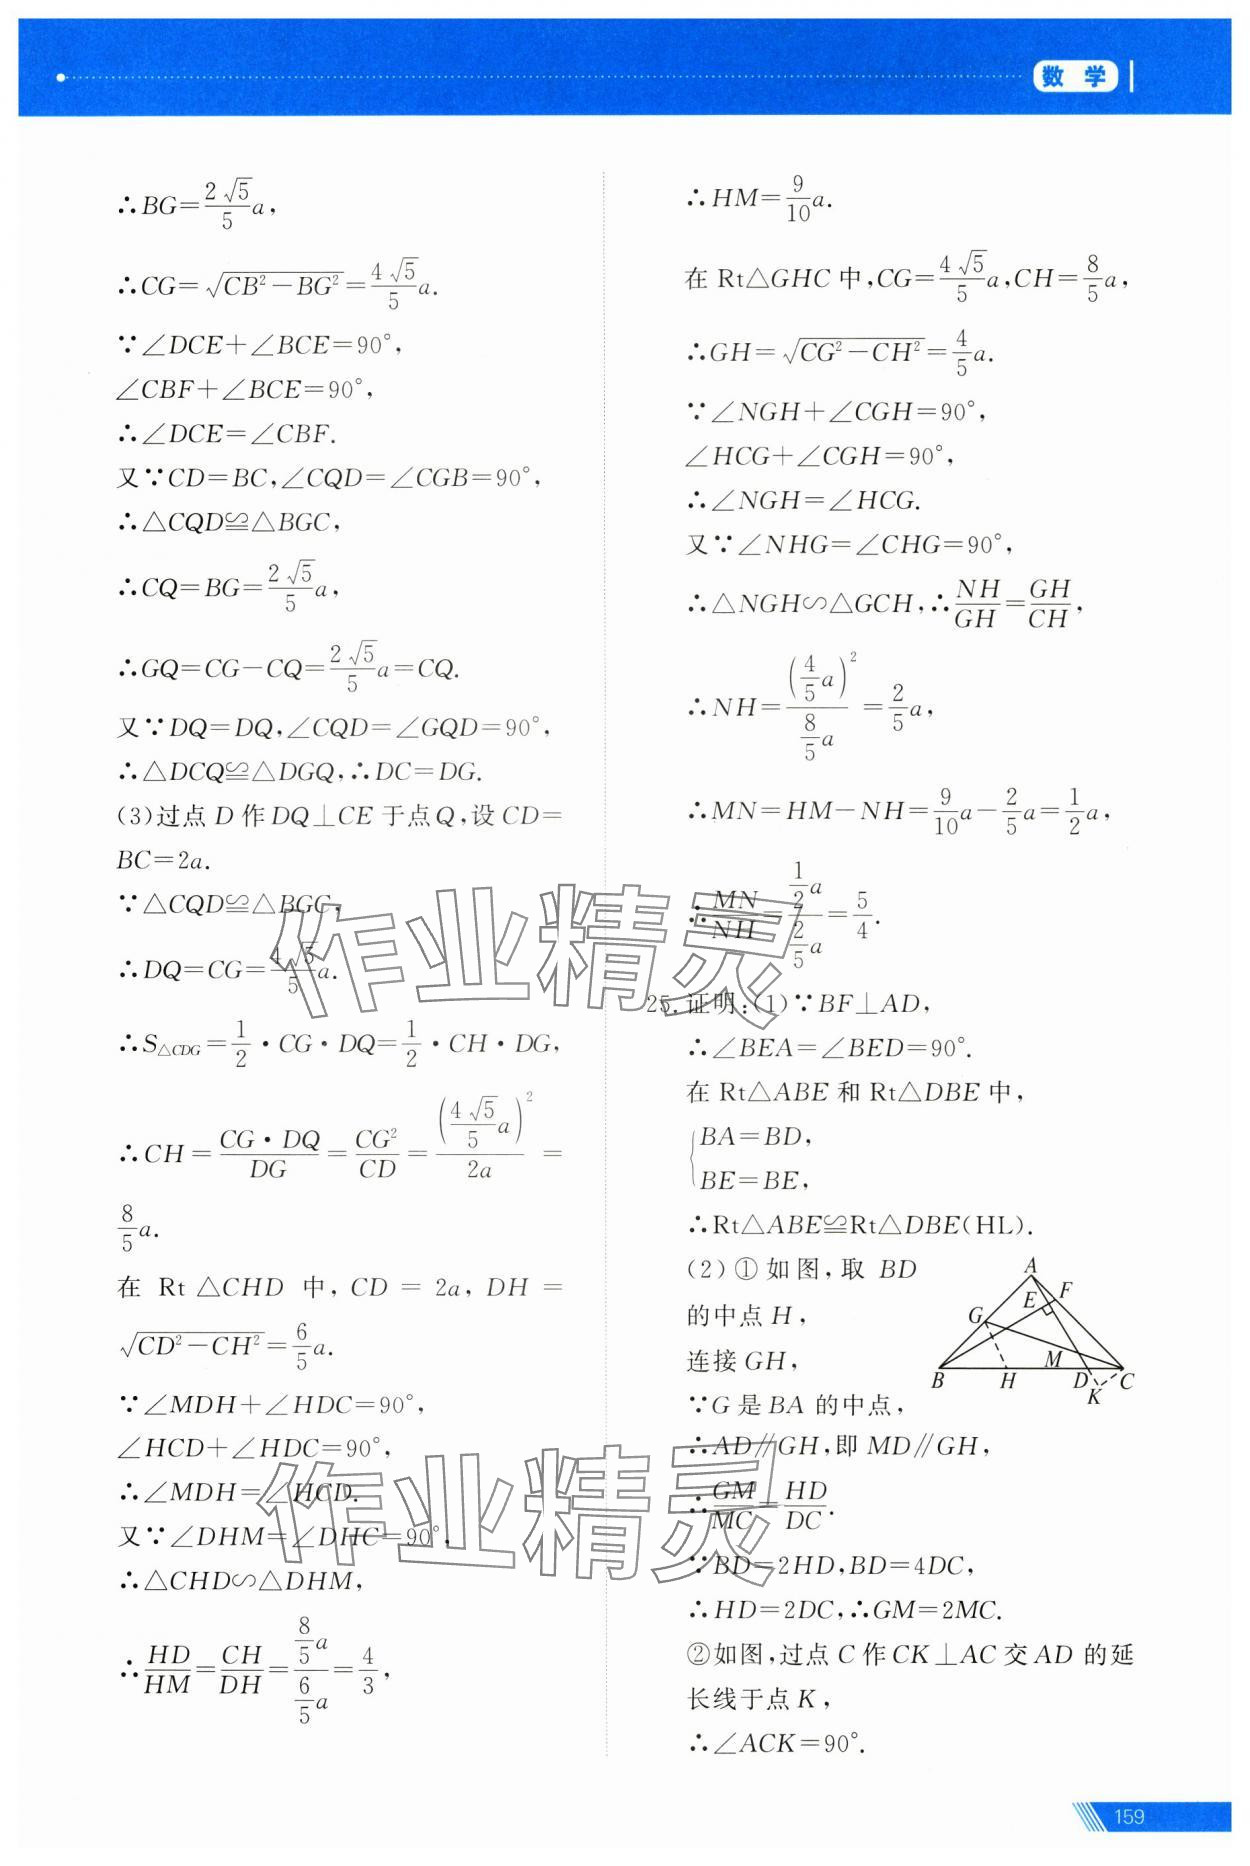 数 学
∴BG=\frac{2\sqrt{5}}{5}a,
∴CG=\sqrt{CB²-BG²}=\frac{4\sqrt{5}}{5}a.
∵∠DCE+∠BCE=90°,
∠CBF+∠BCE=90°,
∴∠DCE=∠CBF.
又∵CD=BC,∠CQD=∠CGB=90°,
∴△CQD≌△BGC,
∴CQ=BG=\frac{2\sqrt{5}}{5}a,
∴GQ=CG-CQ=\frac{2\sqrt{5}}{5}a=CQ.
又∵DQ=DQ,∠CQD=∠GQD=90°,
∴△DCQ≌△DGQ,∴DC=DG.
(3)过点D作DQ⊥CE于点Q,设CD=
BC=2a.
∵△CQD≌△BGC,
∴DQ=CG=\frac{4\sqrt{5}}{5}a.
∴S△CDG=\frac{1}{2}·CG·DQ=\frac{1}{2}·CH·DG,
∴CH=\frac{CG·DQ}{DG}=\frac{CG²}{CD}=\frac{(\frac{4\sqrt{5}}{5}a)²}{2a}=
\frac{8}{5}a.
在 Rt△CHD 中,CD=2a,DH=
\sqrt{CD²-CH²}=\frac{6}{5}a.
∵∠MDH+∠HDC=90°,
∠HCD+∠HDC=90°,
∴∠MDH=∠HCD.
又∵∠DHM=∠DHC=90°,
∴△CHD∽△DHM,
∴\frac{HD}{HM}=\frac{CH}{DH}=\frac{\frac{8}{5}a}{\frac{6}{5}a}=\frac{4}{3},
∴HM=\frac{9}{10}a.
在 Rt△GHC 中,CG=\frac{4\sqrt{5}}{5}a,CH=\frac{8}{5}a,
∴GH=\sqrt{CG²-CH²}=\frac{4}{5}a.
∵∠NGH+∠CGH=90°,
∠HCG+∠CGH=90°,
∴∠NGH=∠HCG.
又∵∠NHG=∠CHG=90°,
∴△NGH∽△GCH,∴\frac{NH}{GH}=\frac{GH}{CH},
∴NH=\frac{(\frac{4}{5}a)²}{\frac{8}{5}a}=\frac{2}{5}a,
∴MN=HM-NH=\frac{9}{10}a-\frac{2}{5}a=\frac{1}{2}a,
∴\frac{MN}{NH}=\frac{\frac{1}{2}a}{\frac{2}{5}a}=\frac{5}{4}.
25.证明:(1)∵BF⊥AD,
∴∠BEA=∠BED=90°.
在 Rt△ABE 和 Rt△DBE 中,
{BA=BD,
BE=BE,
∴Rt△ABE≌Rt△DBE(HL).
(2)①如图,取 BD
的中点 H,
连接 GH,
∵G 是 BA 的中点,
∴AD∥GH,即 MD∥GH,
∴\frac{GM}{MC}=\frac{HD}{DC}.
∵BD=2HD,BD=4DC,
∴HD=2DC,∴GM=2MC.
②如图,过点 C 作 CK⊥AC 交 AD 的延
长线于点 K,
∴∠ACK=90°.
A
F
E
G
M
B
H
D
K
C
作业精灵
作业精灵
159